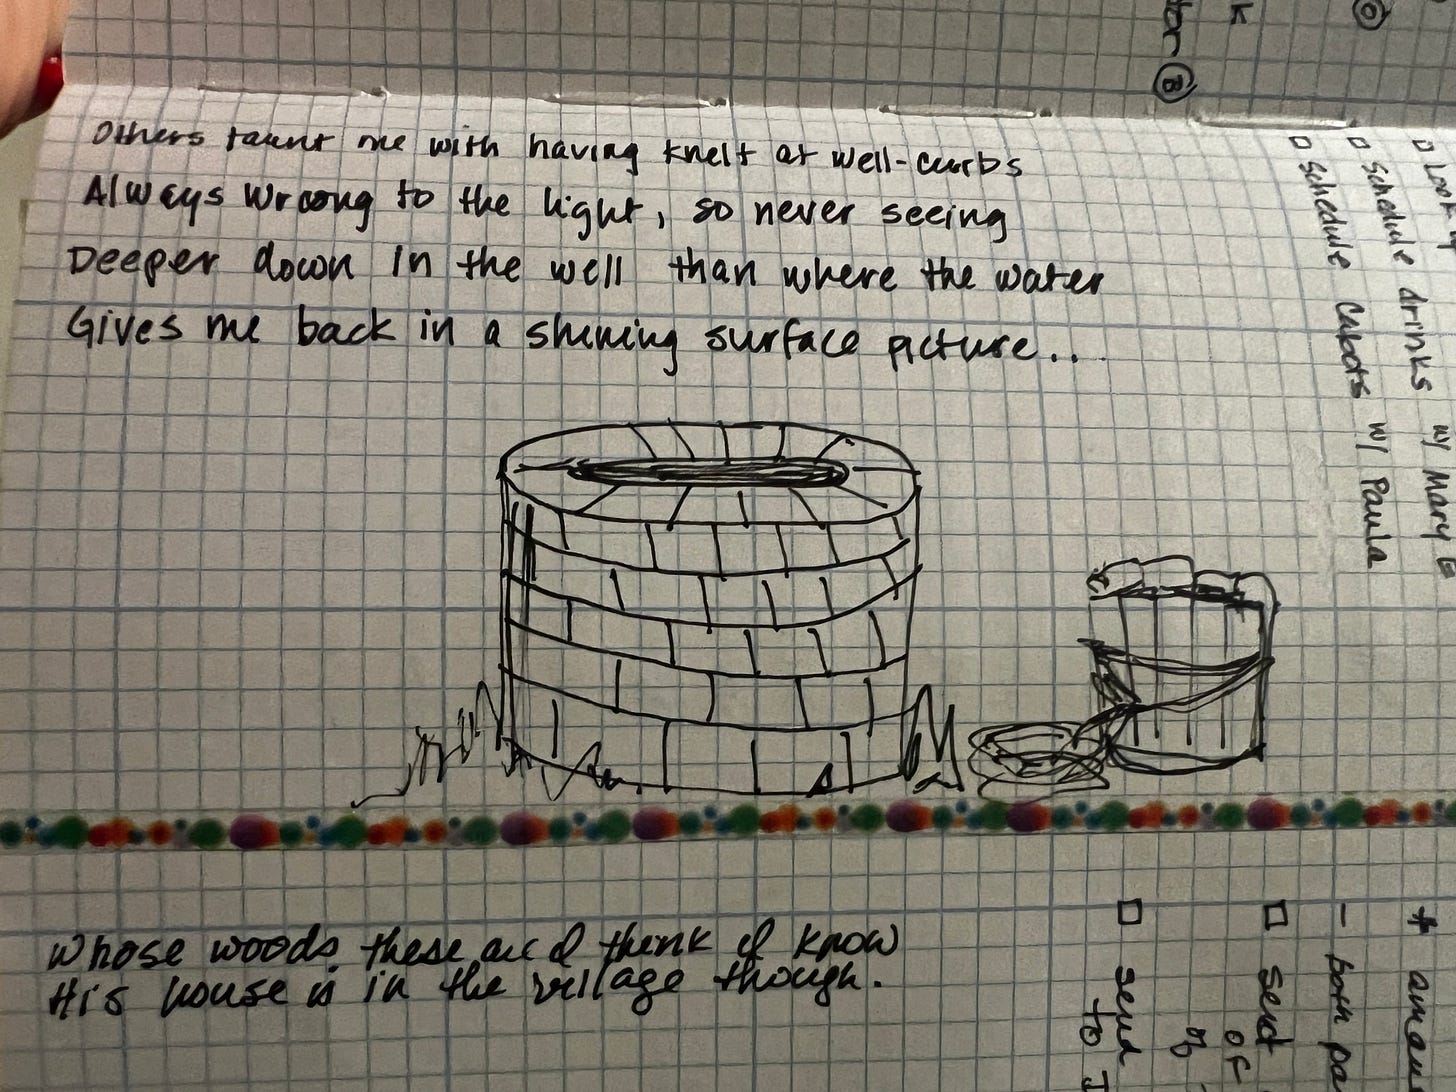 Others taunt me with having knelt at well-curbs
Always wrong to the light, so never seeing
Deeper down in the well than where the water
Gives me back in a shining surface picture...
Whose woods these are I think I know
His house is in the village though.
k
B
□ Schedule drinks w/ Mary E
□ Schedule Cabots w/ Paula
+
- both pa
□ send
of
□ send
to I